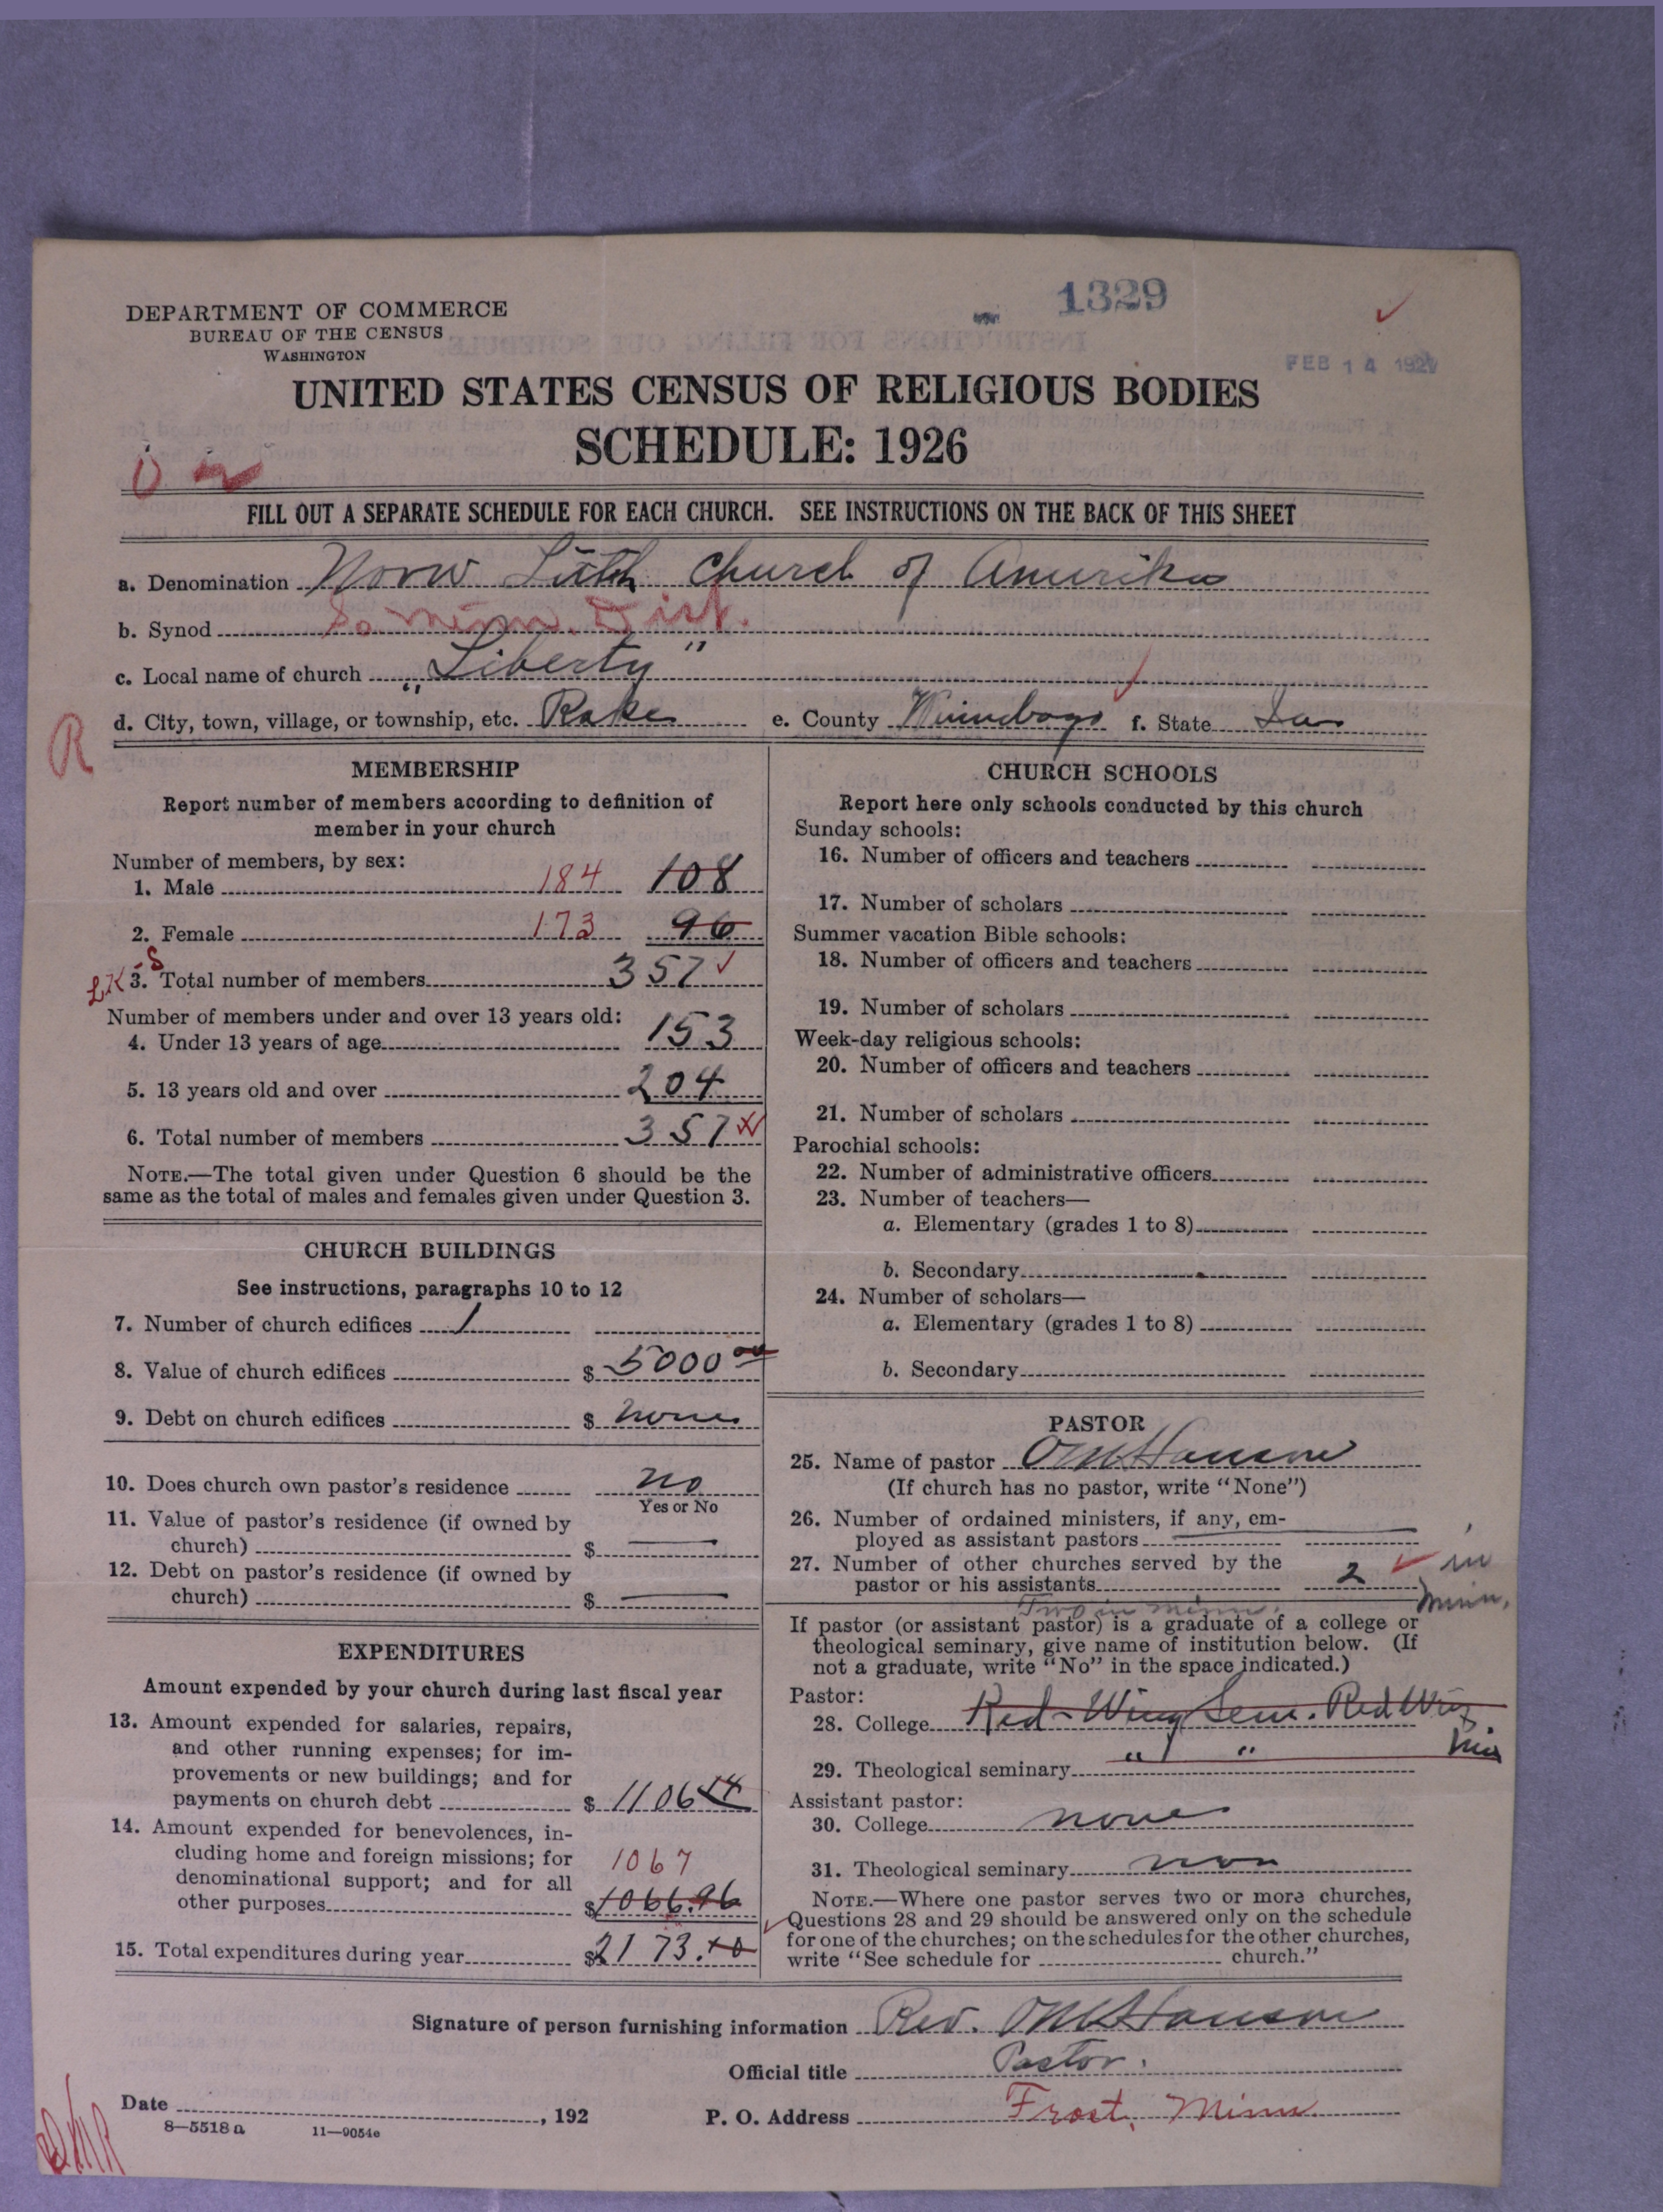 1329
DEPARTMENT OF COMMERCE
BUREAU OF THE CENSUS
WASHINGTON
FEB 14 192
UNITED STATES CENSUS OF RELIGIOUS BODIES
SCHEDULE: 1926
FILL OUT A SEPARATE SCHEDULE FOR EACH CHURCH. SEE INSTRUCTIONS ON THE BACK OF THIS SHEET
a. Denomination Norw Luth Church of Amerika
b. Synod So Minn. Dist.
c. Local name of church "Liberty"
d. City, town, village, or township, etc. Rake e. County Winnebago f. State Ia
R
MEMBERSHIP
Report number of members according to definition of
member in your church
Number of members, by sex:
1. Male 184 108
2. Female 173 96
3. Total number of members 357
Number of members under and over 13 years old:
4. Under 13 years of age 153
5. 13 years old and over 204
6. Total number of members 357
NOTE.—The total given under Question 6 should be the
same as the total of males and females given under Question 3.
CHURCH BUILDINGS
See instructions, paragraphs 10 to 12
7. Number of church edifices 1
8. Value of church edifices $ 5000 00
9. Debt on church edifices $ none
10. Does church own pastor's residence no
Yes or No
11. Value of pastor's residence (if owned by
church) $ —
12. Debt on pastor's residence (if owned by
church) $ —
EXPENDITURES
Amount expended by your church during last fiscal year
13. Amount expended for salaries, repairs,
and other running expenses; for im-
provements or new buildings; and for
payments on church debt $ 1106 44
14. Amount expended for benevolences, in-
cluding home and foreign missions; for 1067
denominational support; and for all
other purposes $ 1066.96
15. Total expenditures during year $ 2173.40
CHURCH SCHOOLS
Report here only schools conducted by this church
Sunday schools:
16. Number of officers and teachers
17. Number of scholars
Summer vacation Bible schools:
18. Number of officers and teachers
19. Number of scholars
Week-day religious schools:
20. Number of officers and teachers
21. Number of scholars
Parochial schools:
22. Number of administrative officers
23. Number of teachers—
a. Elementary (grades 1 to 8)
b. Secondary
24. Number of scholars—
a. Elementary (grades 1 to 8)
b. Secondary
PASTOR
25. Name of pastor O M Hanson
(If church has no pastor, write "None")
26. Number of ordained ministers, if any, em-
ployed as assistant pastors
27. Number of other churches served by the
pastor or his assistants 2 in
Minn.
Two in Minn.
If pastor (or assistant pastor) is a graduate of a college or
theological seminary, give name of institution below. (If
not a graduate, write "No" in the space indicated.)
Pastor:
28. College Red-Wing Sem. Red Wing
29. Theological seminary " "
Assistant pastor:
30. College none
31. Theological seminary non
NOTE.—Where one pastor serves two or more churches,
Questions 28 and 29 should be answered only on the schedule
for one of the churches; on the schedules for the other churches,
write "See schedule for church."
Signature of person furnishing information Rev. O M Hanson
Official title Pastor.
Date , 192 P. O. Address Frost, Minn.
8—5518 a 11—9054e